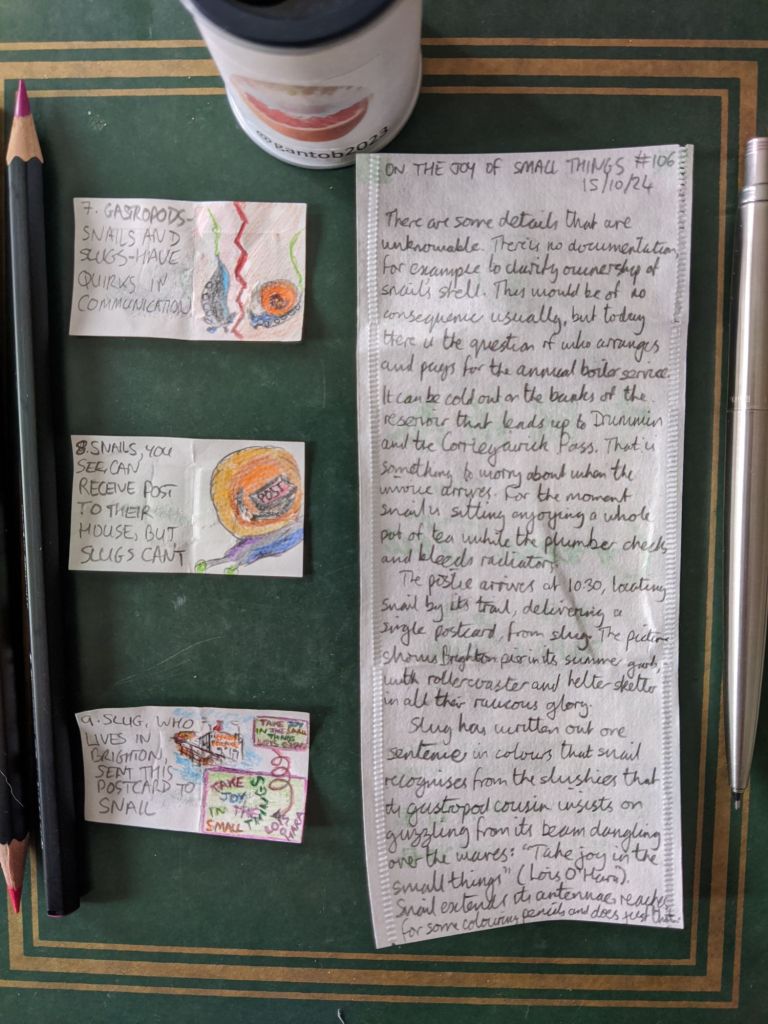 @gantob2023
7. GASTROPODS-
SNAILS AND
SLUGS-HAVE
QUIRKS IN
COMMUNICATION
8. SNAILS, YOU
SEE, CAN
RECEIVE POST
TO THEIR
HOUSE, BUT
SLUGS CAN'T
POST
9. SLUG, WHO
LIVES IN
BRIGHTON,
SENT THIS
POSTCARD TO
SNAIL
TAKE JOY
IN THE SMALL
THINGS
TAKE
JOY
IN THE
SMALL
THINGS
ON THE JOY OF SMALL THINGS #106
15/10/24
There are some details that are
unknowable. There is no documentation,
for example to clarify ownership of
snail's shell. This would be of no
consequence usually, but today
there is the question of who arranges
and pays for the annual boiler service.
It can be cold out on the banks of the
reservoir that leads up to Drummin
and the Corrieyairick Pass. That is
something to worry about when the
invoice arrives. For the moment
snail is sitting enjoying a whole
pot of tea while the plumber checks
and bleeds radiators.
The postie arrives at 10:30, locating
snail by its trail, delivering a
single postcard, from slug. The picture
shows Brighton pier in its summer garb,
with rollercoaster and helter skelter
in all their raucous glory.
Slug has written out one
sentence in colours that snail
recognises from the slushies that
its gastropod cousin insists on
guzzling from its beam dangling
over the waves: "Take joy in the
small things" (Lois O'Hara).
Snail extends its antennae, reaches
for some colouring pencils and does just that.